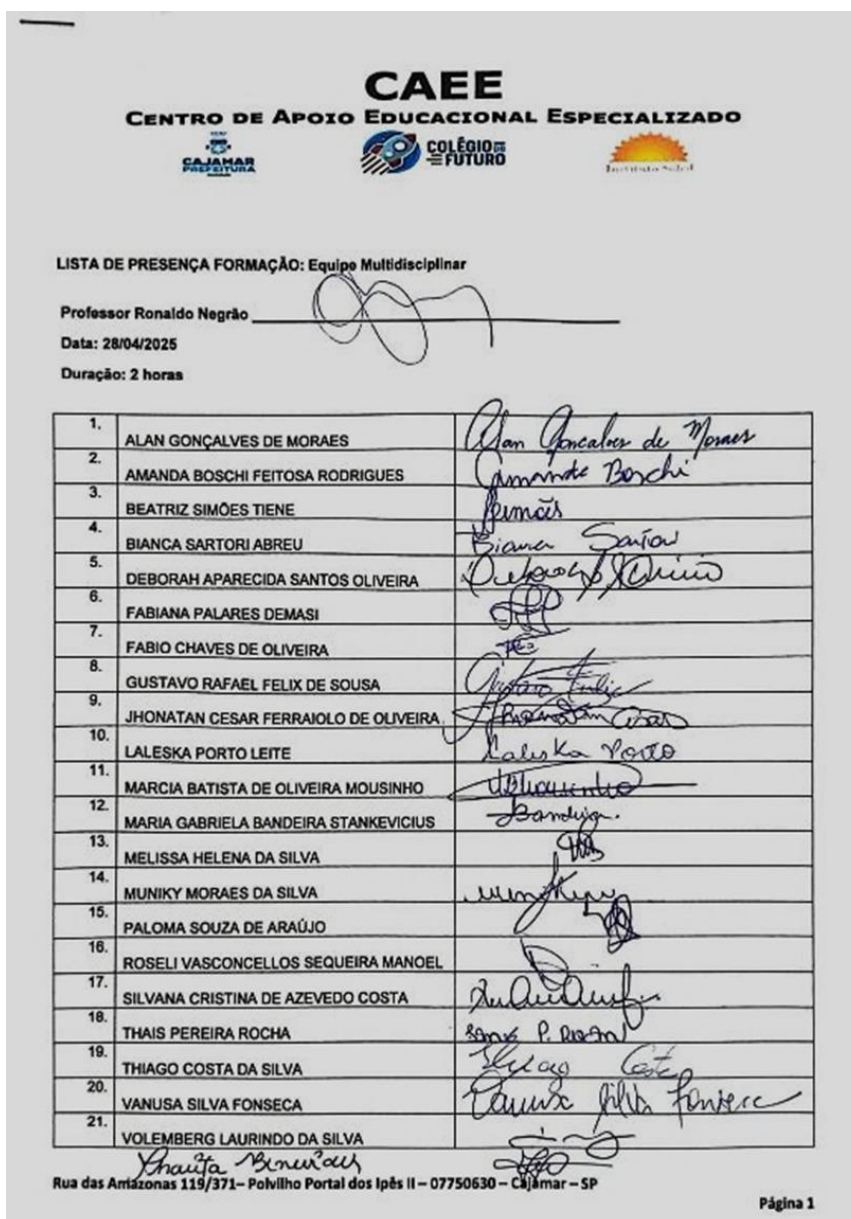 CAEE
CENTRO DE APOIO EDUCACIONAL ESPECIALIZADO
CAJAMAR
PREFEITURA
COLÉGIO DO
FUTURO
LISTA DE PRESENÇA FORMAÇÃO: Equipe Multidisciplinar
Professor Ronaldo Negrão
Data: 28/04/2025
Duração: 2 horas
1. ALAN GONÇALVES DE MORAES Alan Goncalves de Moraes
2. AMANDA BOSCHI FEITOSA RODRIGUES Amanda Boschi
3. BEATRIZ SIMÕES TIENE
4. BIANCA SARTORI ABREU Bianca Sartori
5. DEBORAH APARECIDA SANTOS OLIVEIRA
6. FABIANA PALARES DEMASI
7. FABIO CHAVES DE OLIVEIRA
8. GUSTAVO RAFAEL FELIX DE SOUSA Gustavo Felix
9. JHONATAN CESAR FERRAIOLO DE OLIVEIRA Jhonatan Cesar
10. LALESKA PORTO LEITE Laleska Porto
11. MARCIA BATISTA DE OLIVEIRA MOUSINHO
12. MARIA GABRIELA BANDEIRA STANKEVICIUS
13. MELISSA HELENA DA SILVA
14. MUNIKY MORAES DA SILVA
15. PALOMA SOUZA DE ARAÚJO
16. ROSELI VASCONCELLOS SEQUEIRA MANOEL
17. SILVANA CRISTINA DE AZEVEDO COSTA
18. THAIS PEREIRA ROCHA
19. THIAGO COSTA DA SILVA Thiago Costa
20. VANUSA SILVA FONSECA Vanusa Silva Fonseca
21. VOLEMBERG LAURINDO DA SILVA
Rua das Amazonas 119/371– Polvilho Portal dos Ipês II – 07750630 – Cajamar – SP
Página 1